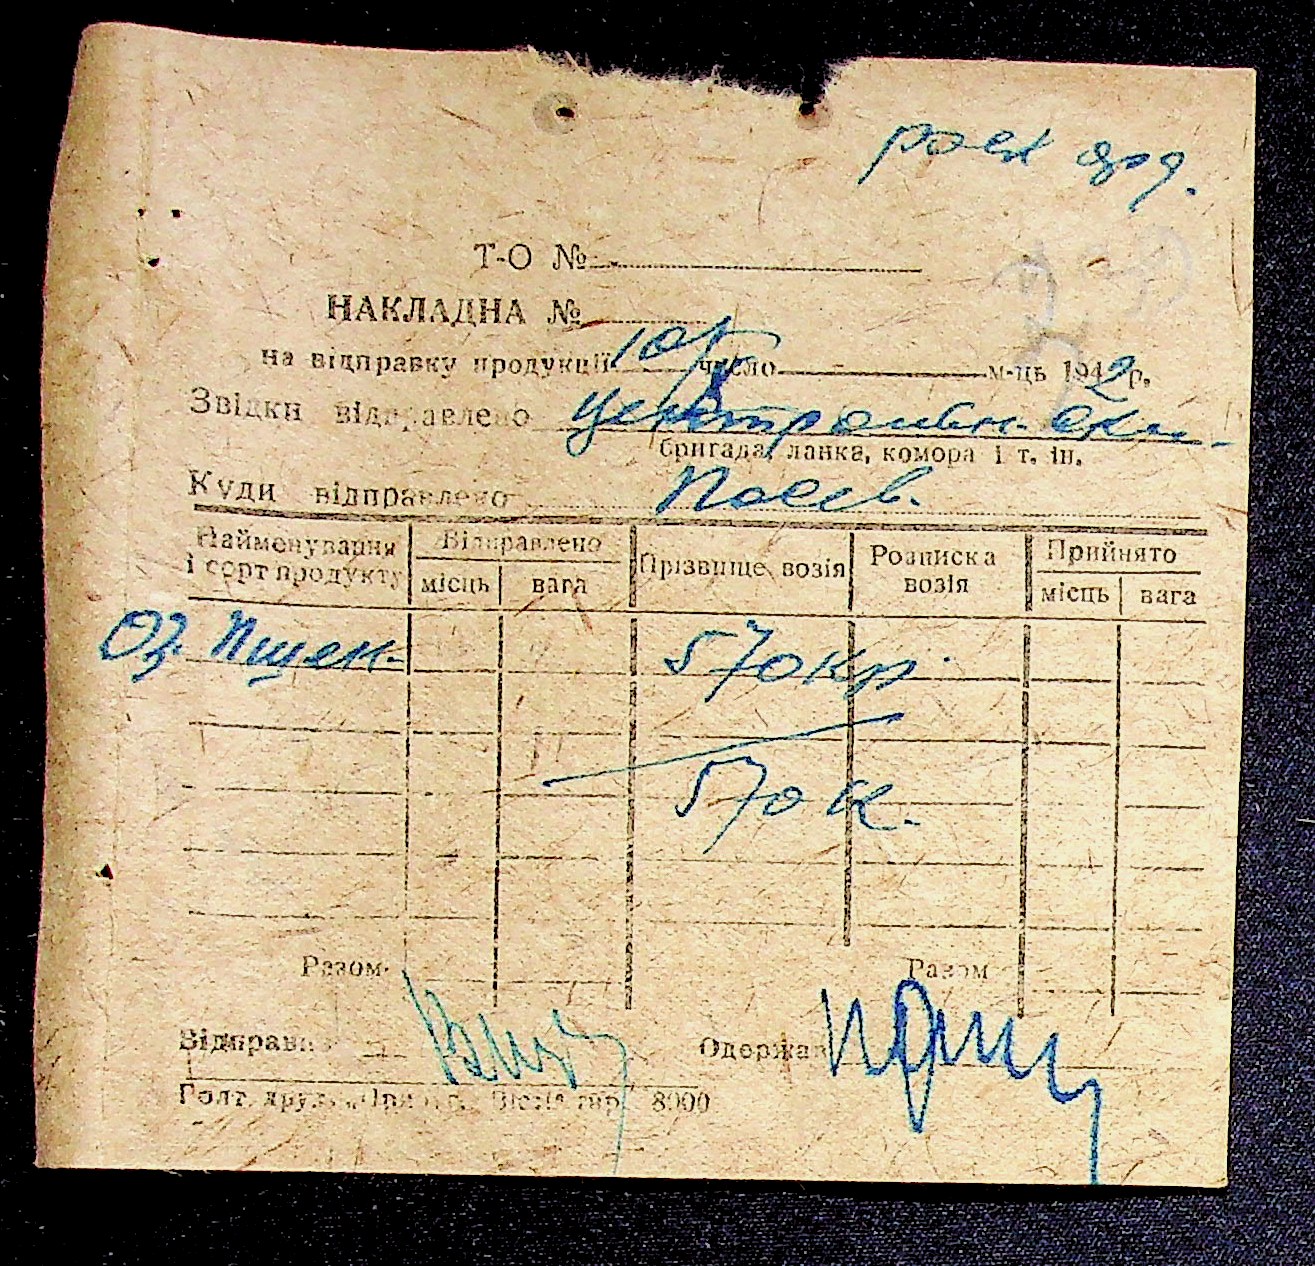 Т-О №
НАКЛАДНА №
на відправку продукції 10/X число м-ць 1942 р.
Звідки відправлено
бригада, ланка, комора і т. ін.
Куди відправлено Посев.
Найменування і сорт продукту Відправлено місць вага Прізвище возія Розписка возія Прийнято місць вага
Оз. Пшен. 570 кгр.
570 к.
Разом Разом
Відправи Одержав
8000